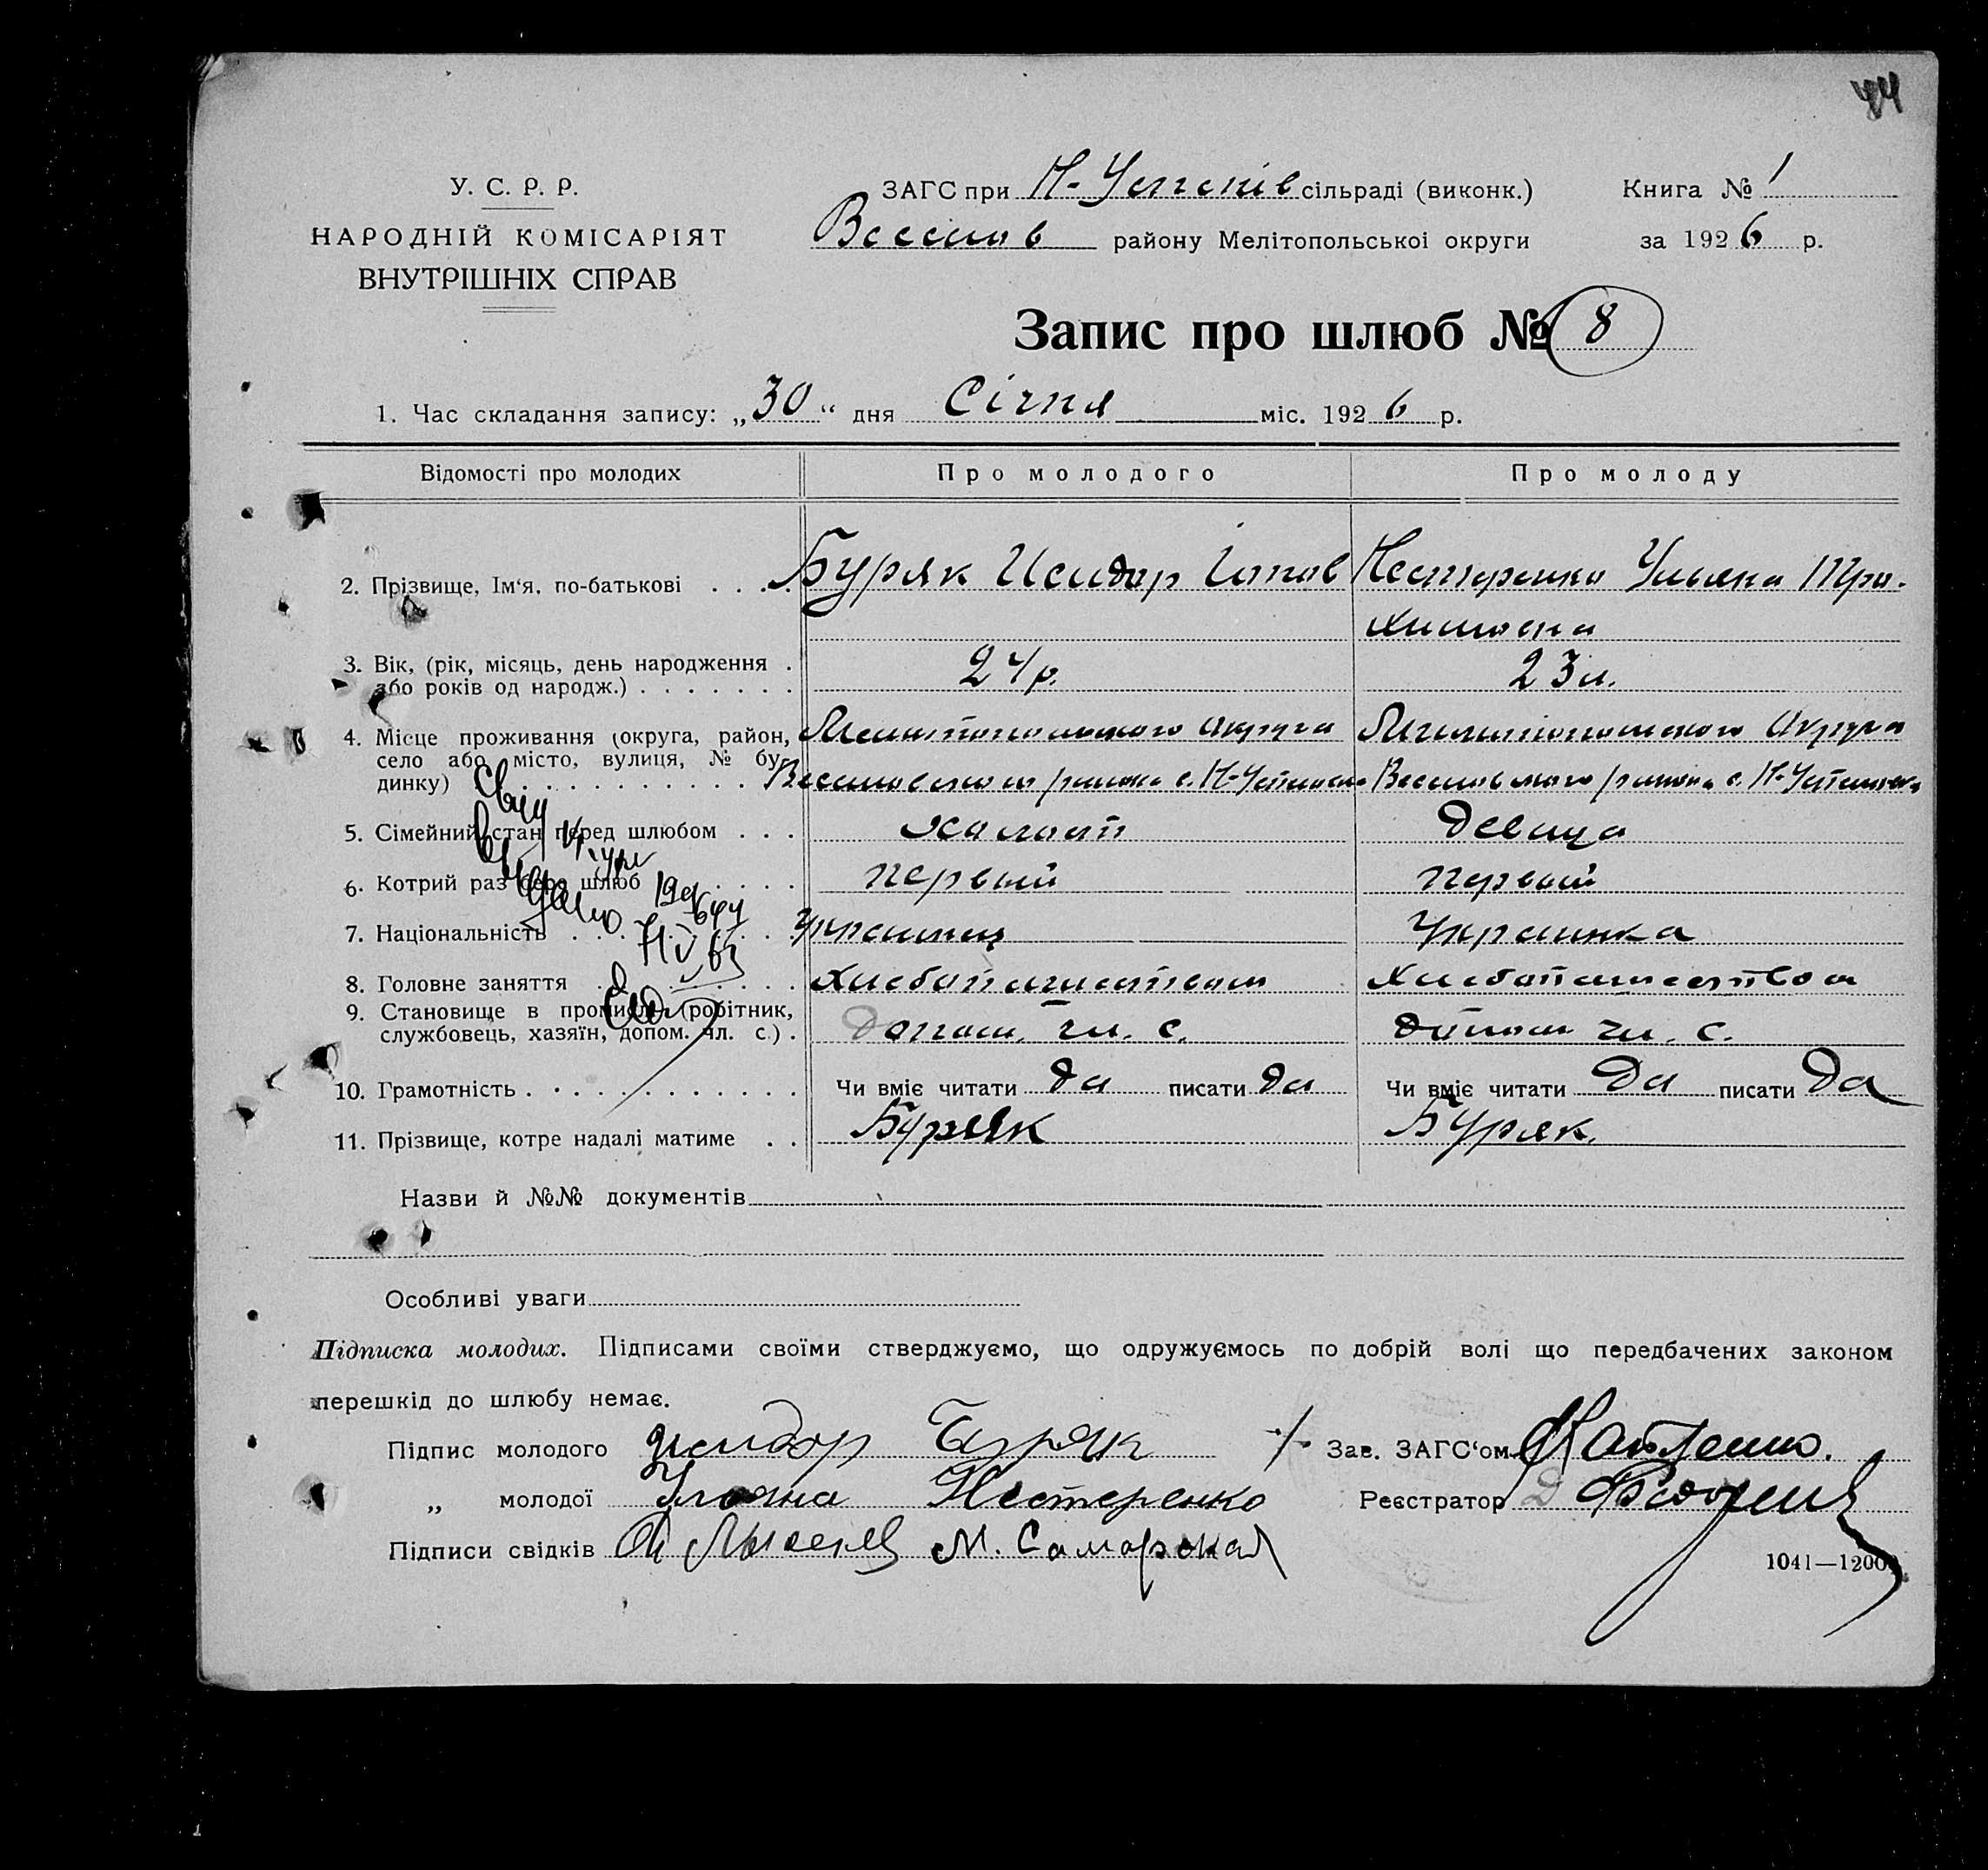 44
У. С. Р. Р.
НАРОДНІЙ КОМІСАРІЯТ
ВНУТРІШНІХ СПРАВ
ЗАГС при Н-Успенів сільраді (виконк.)
Веселов району Мелітопольської округи
Книга № 1
за 1926 р.
Запис про шлюб № 8
1. Час складання запису: „30“ дня Січня міс. 1926 р.
Відомості про молодих Про молодого Про молоду
2. Прізвище, Ім‘я, по-батькові . . . . Буряк Исидор Іопов Нестеренко Ульяна Тро-
химовна
3. Вік, (рік, місяць, день народження . 24 р. 23 л.
або років од народж.) . . . . . . .
4. Місце проживання (округа, район, Мелитопольского Округа Мелитопольского Округа
село або місто, вулиця, № бу- Веселовского района с. Н-Успеновка Веселовского района с. Н-Успеновка
динку) . . . . . . . . . . .
5. Сімейний стан перед шлюбом . . . холост девица
6. Котрий раз бере шлюб . . . . первый первый
7. Національність . . . . . . . . украинец Украинка
8. Головне заняття . . . . . . . . хлебопашеством хлебопашеством
9. Становище в промислі (робітник,
службовець, хазяїн, допом. чл. с.) . Допом. чл. с. допом чл. с.
10. Грамотність . . . . . . . . . . . Чи вміє читати да писати да Чи вміє читати Да писати Да
11. Прізвище, котре надалі матиме . . Буряк Буряк.
Назви й №№ документів
Особливі уваги
Підписка молодих. Підписами своїми стверджуємо, що одружуємось по добрій волі що передбачених законом
перешкід до шлюбу немає.
Підпис молодого Исидор Буряк Зав. ЗАГС‘ом
„ молодої Ульяна Нестеренко Реєстратор
Підписи свідків М. Самарская
1041—12000